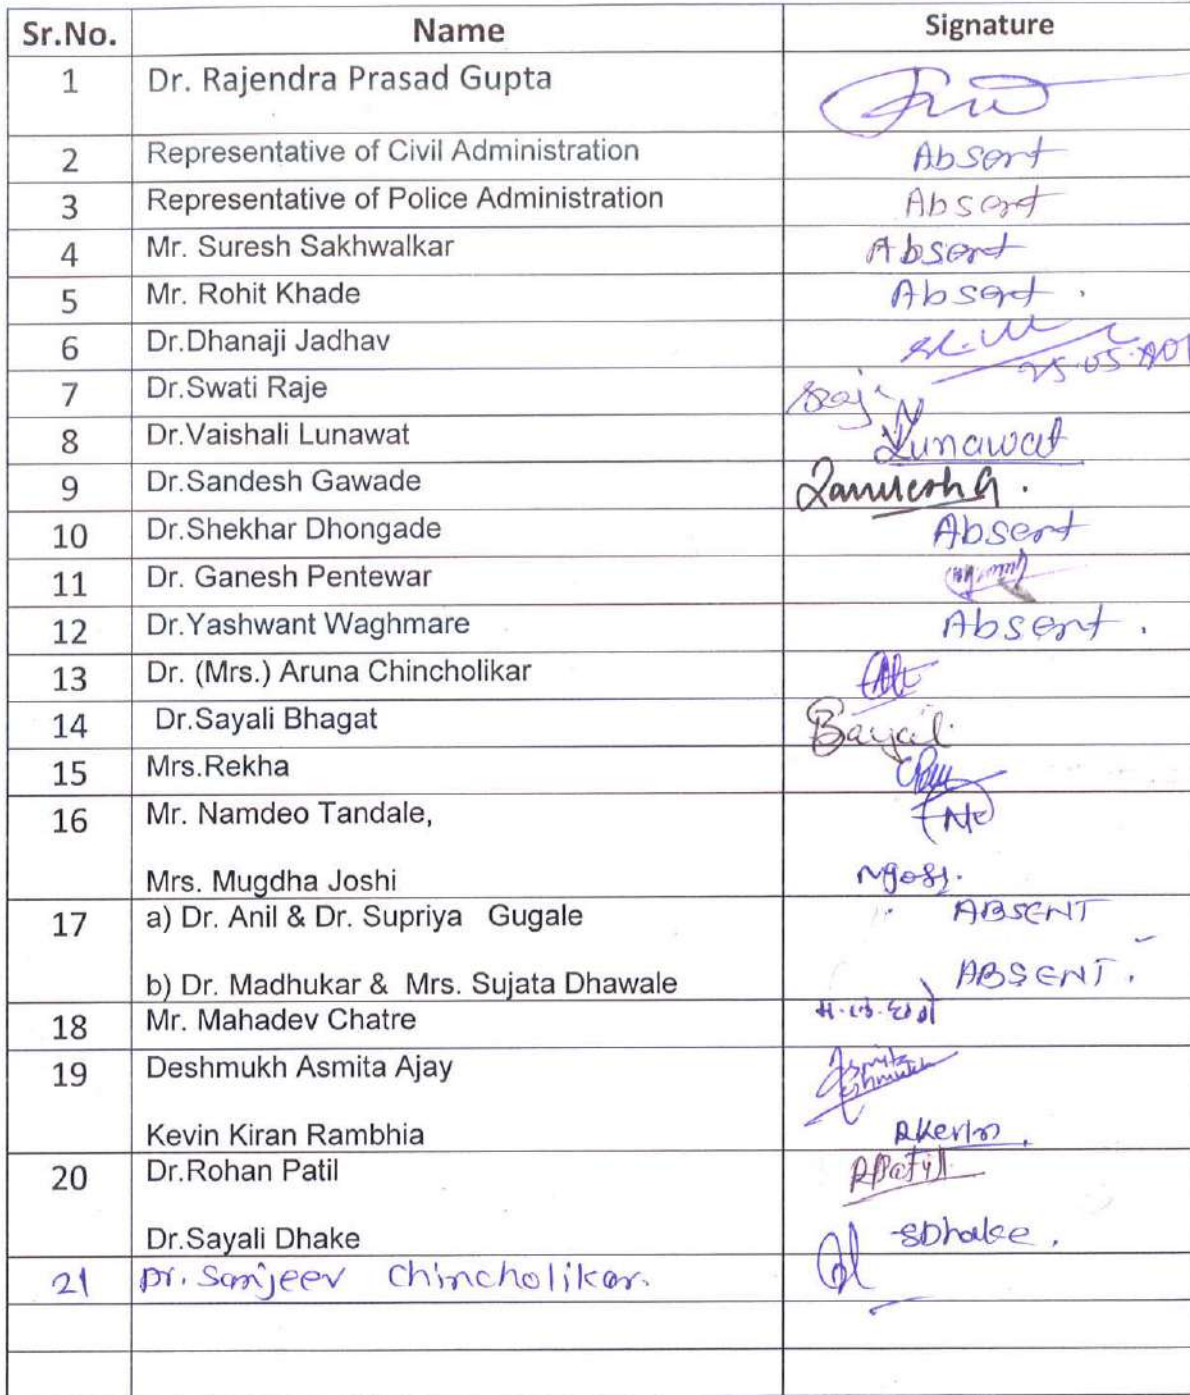 Sr.No. Name Signature
1 Dr. Rajendra Prasad Gupta
2 Representative of Civil Administration Absent
3 Representative of Police Administration Absent
4 Mr. Suresh Sakhwalkar Absent
5 Mr. Rohit Khade Absent .
6 Dr.Dhanaji Jadhav
7 Dr.Swati Raje
8 Dr.Vaishali Lunawat Lunawat
9 Dr.Sandesh Gawade
10 Dr.Shekhar Dhongade Absent
11 Dr. Ganesh Pentewar
12 Dr.Yashwant Waghmare Absent .
13 Dr. (Mrs.) Aruna Chincholikar
14 Dr.Sayali Bhagat
15 Mrs.Rekha
16 Mr. Namdeo Tandale,
Mrs. Mugdha Joshi
17 a) Dr. Anil & Dr. Supriya Gugale ABSENT
b) Dr. Madhukar & Mrs. Sujata Dhawale ABSENT.
18 Mr. Mahadev Chatre
19 Deshmukh Asmita Ajay Asmita
Deshmukh
Kevin Kiran Rambhia RKevin
20 Dr.Rohan Patil RPatil
Dr.Sayali Dhake SDhake.
21 Dr. Sanjeev Chincholikar.